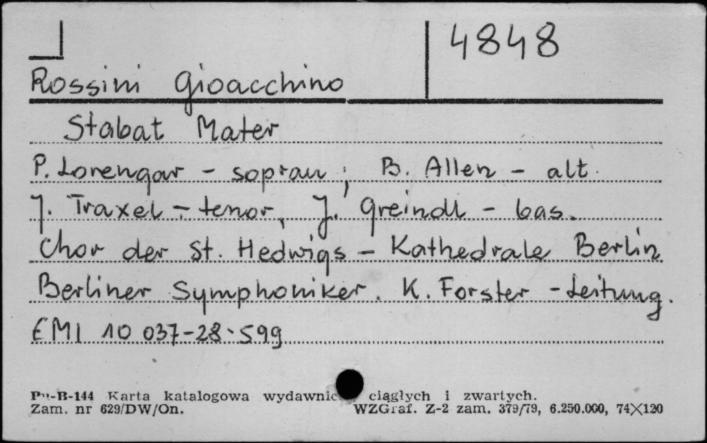 4848
Rossini Gioacchino
Stabat Mater
P. Lorengar - sopran; B. Allen - alt.
J. Traxel - tenor, J. Greindl - bas.
Chor der St. Hedwigs - Kathedrale Berlin
Berliner Symphoniker. K. Forster - Leitung.
EMI 10 037-28.599
Pu-B-144 Karta katalogowa wydawnic ciągłych i zwartych.
Zam. nr 629/DW/On. WZGraf. Z-2 zam. 379/79, 6.250.000, 74X120